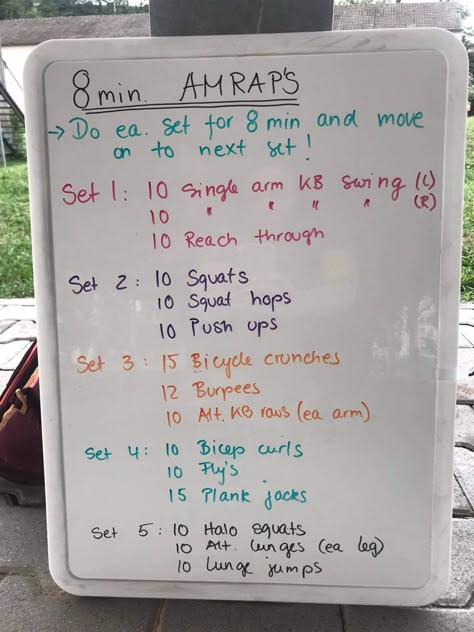 8 min. AMRAP'S
→ Do ea. set for 8 min and move
on to next set!
Set 1: 10 Single arm KB swing (L)
10 " " " " (R)
10 Reach through
Set 2: 10 Squats
10 Squat hops
10 Push ups
Set 3: 15 Bicycle crunches
12 Burpees
10 Alt. KB rows (ea arm)
Set 4: 10 Bicep curls
10 Fly's
15 Plank jacks
Set 5: 10 Halo squats
10 Alt. lunges (ea leg)
10 Lunge jumps